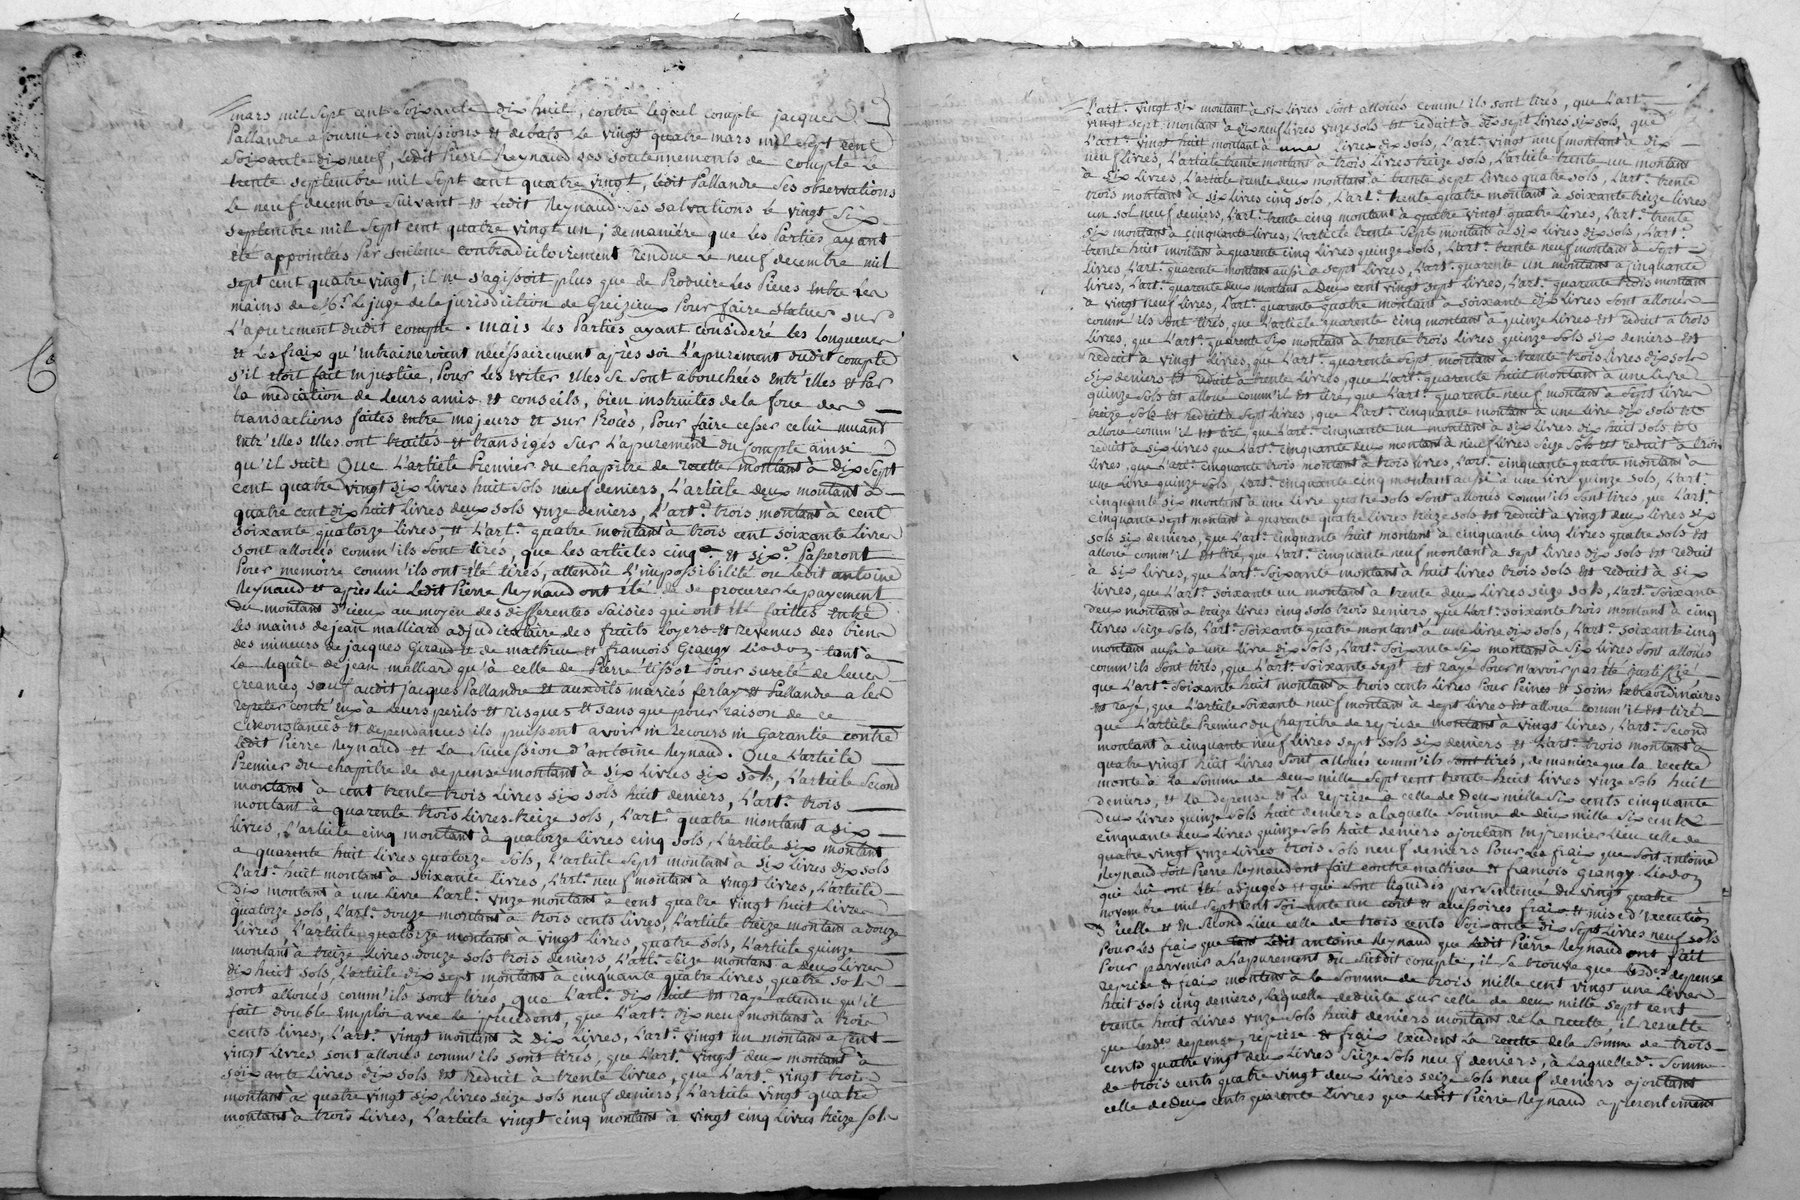 mars mil sept cent soixante dix huit, contre lequel compte jacques
Pallandre a fourni ses omissions et debats le vingt quatre mars mil sept cent
soixante dix neuf, Ledit Pierre Reynaud ses soutennements de compte le
trente septembre mil sept cent quatre vingt, Ledit Pallandre ses observations
Le neuf decembre suivant et Ledit Reynaud ses salvations le vingt six
septembre mil sept cent quatre vingt un; de maniére que les Parties ayant
été appointées Par sentence contradictoirement rendue Le neuf decembre mil
sept cent quatre vingt, il ne s'agissoit plus que de Produire Les Pieces entre les
mains de Mr. Le juge de la jurisdiction de Greizieux Pour faire statuer sur
L'apurement dudit compte. mais Les Parties ayant consideré les longueurs
et Les fraix qu'entraineroient necéssairement après soi L'apurement dudit compte
s'il étoit fait en justice, Pour Les eviter elles se sont abouchées entr'elles et Par
La médiation de Leurs amis et conseils, bien instruites de la force des
transactions faites entre majeurs et sur Procès, Pour faire cesser celui muant
entr'elles elles ont traités et transigés sur L'apurement du compte ainsi
qu'il suit Que L'article Premier du chapitre de recette montant à Dix Sept
cent quatre vingt six Livres huit sols neuf deniers, L'article deux montant à
quatre cent dix huit Livres deux sols vnze deniers, L'art.e trois montant à cent
soixante quatorze Livres et L'art.e quatre montant à trois cent soixante Livres
sont alloués comm'ils sont tirés, que Les articles cinq.e et six.e Passeront
Pour memoire comm'ils ont été tirés, attendû L'impossibilité ou Ledit antoine
Reynaud et après Lui Ledit Pierre Reynaud ont été de se procurer Le payement
du montant d'iceux au moyen des differentes saisies qui ont été faittes entre
Les mains de jean malliard adjudicataire des fruits Loyers et revenus des biens
des mineurs de jacques Giraud et de mathieu et francois Grangy Liodon tant à
La requête de jean malliard qu'à celle de Pierre tissot Pour sureté de leurs
creances, sauf audit jacques Pallandre et auxdits mariés ferlay et Pallandre a les
repeter contr'eux à Leurs perils et risques et sans que pour raison de ce
circonstances et dependances ils puissent avoir ni recours ni Garantie contre
Ledit Pierre Reynaud et La Succession d'antoine Reynaud. Que L'article
Premier du chapitre de depense montant à six Livres six sols, L'article Second
montant à cent trente trois Livres six sols huit deniers, L'art.e trois
montant à quarente trois Livres treize sols, L'art quatre montant a six
livres, L'article cinq montant à quatorze Livres cinq sols, L'article six montant
a quarente huit Livres quatorze sols, L'article sept montant à six Livres dix sols
L'art.e huit montant à soixante Livres, L'art.e neuf montant à vingt Livres, L'article
Dix montant à une Livre L'art.e vnze montant à cent quatre vingt huit Livres
quatorze sols, L'art.e douze montant à trois cents Livres, L'article treize montant à douze
Livres L'article quatorze montant à vingt Livres, quatre sols, L'article quinze
montant à treize Livres douze sols trois deniers L'art.e seize montant à deux Livres
dix huit sols, L'article dix sept montant à cinquante quatre Livres, quatre sols
sont alloués comm'ils sont tirés, que L'art.e dix huit est rayé attendu qu'il
fait double emploi avec le précédent, que L'art.e dix neuf montant à trois
cents livres, L'art.e vingt montant à dix Livres, L'art.e vingt un montant à cent
vingt Livres sont alloués comm'ils sont tirés, que L'art.e vingt deux montant à
soixante Livres dix sols est reduit à trente Livres, que L'art.e vingt trois
montant à quatre vingt six Livres seize sols neuf deniers, L'article vingt quatre
montant à trois Livres, L'article vingt cinq montant à vingt cinq Livres treize sols
L'art.e vingt six montant à six Livres sont alloués comm'ils sont tirés, que L'art.e
vingt sept montant à dix neuf Livres vnze sols est reduit à dix sept Livres six sols, que
L'art.e vingt huit montant à une Livre dix sols, L'art.e vingt neuf montant à dix
neuf Livres, L'article trente montant à trois Livres treize sols, L'article trente un montant
à six Livres, L'article trente deux montant à trente sept Livres quatre sols, L'art.e trente
trois montant à six Livres cinq sols, L'art.e trente quatre montant à soixante treize Livres
un sol neuf deniers, L'art.e trente cinq montant à quatre vingt quatre Livres, L'art.e trente
six montant à cinquante Livres, L'article trente sept montant à six Livres dix sols, L'art.e
trente huit montant à quarente cinq Livres quinze sols, L'art.e trente neuf montant à sept
Livres L'art.e quarente montant aussi à sept Livres, L'art.e quarente un montant à cinquante
Livres, L'art.e quarente deux montant à deux cent vingt sept Livres, L'art.e quarente trois montant
à vingt neuf Livres, L'art.e quarente quatre montant à soixante dix Livres sont alloués
comm'ils sont tirés, que L'article quarente cinq montant à quinze Livres est reduit à trois
Livres, que L'art.e quarente six montant à trente trois Livres quinze sols six deniers est
reduit à vingt Livres, que L'art.e quarente sept montant à trente trois Livres dix sols
six deniers est reduit à trente Livres, que L'art.e quarente huit montant à une Livre
quinze sols est alloué comm'il est tiré, que L'art.e quarente neuf montant à sept Livres
treize sols est reduit à sept Livres, que L'art.e cinquante montant à une Livre dix sols est
alloué comm'il est tiré, que L'art.e cinquante un montant à six Livres dix huit sols est
reduit à six Livres que L'art.e cinquante deux montant à neuf Livres seize sols est reduit à trois
Livres, que L'art.e cinquante trois montant à trois Livres, L'art.e cinquante quatre montant à
une Livre quinze sols, L'art.e cinquante cinq montant aussi à une Livre quinze sols, L'art.e
cinquante six montant à une Livre quatre sols sont alloués comm'ils sont tirés, que L'art.e
cinquante sept montant à quarente quatre Livres treize sols est reduit à vingt deux Livres six
sols six deniers, que L'art.e cinquante huit montant à cinquante cinq Livres quatre sols est
alloué comm'il est tiré, que L'art.e cinquante neuf montant à sept Livres dix sols est reduit
à six Livres, que L'art.e soixante montant à huit Livres trois sols est reduit à six
Livres, que L'art.e soixante un montant à trente deux Livres seize sols, L'art.e soixante
deux montant à treize Livres cinq sols trois deniers, que L'art.e soixante trois montant à cinq
Livres seize sols, L'art.e soixante quatre montant à une Livre dix sols, L'art.e soixante cinq
montant aussi à une Livre dix sols, L'art.e soixante six montant à six Livres sont alloués
comm'ils sont tirés, que L'art.e soixante sept est rayé Pour n'avoir pas été justifié
que L'art.e soixante huit montant à trois cents Livres Pour Peines et soins extraordinaires
est rayé, que L'article soixante neuf montant à sept Livres est alloué comm'il est tiré
que L'article Premier du chapitre de reprise montant à vingt Livres, L'art.e second
montant à cinquante neuf Livres sept sols six deniers et L'art.e trois montant à
quatre vingt huit Livres sont alloués comm'ils sont tirés, de maniére que la recette
monte à La somme de deux mille sept cent trente huit Livres vnze sols huit
deniers, et la depense et la reprise à celle de deux mille six cents cinquante
deux Livres quinze sols huit deniers a laquelle somme de deux mille six cents
cinquante deux Livres quinze sols huit deniers ajoutant en premier Lieu celle de
quatre vingt vnze Livres trois sols neuf deniers Pour Les fraix que soit antoine
Reynaud soit Pierre Reynaud ont fait contre mathieu et francois Grangy Liodon
qui Lui ont été adjugés et qui sont liquidés par sentence du vingt quatre
novembre mil sept cent soixante un coût et accessoires fraix et mise d'execution
d'icelle et en second Lieu celle de trois cents soixante dix sept Livres neuf sols
Pour Les fraix que Ledit antoine Reynaud que Ledit Pierre Reynaud ont fait
Pour parvenir a L'apurement du susdit compte, il se trouve que Lesd.es depense
reprise et fraix montent à La Somme de trois mille cent vingt une Livres
huit sols cinq deniers, Laquelle deduite sur celle de deux mille sept cent
trente huit Livres vnze sols huit deniers montant de la recette, il resulte
que Lesd.es depense, reprise et fraix excedent La recette de la somme de trois
cents quatre vingt deux Livres seize sols neuf deniers, à Laquelle d.e somme
de trois cents quatre vingt deux Livres seize sols neuf deniers ajoutant
celle de deux cents quarente Livres que Ledit Pierre Reynaud a presentement